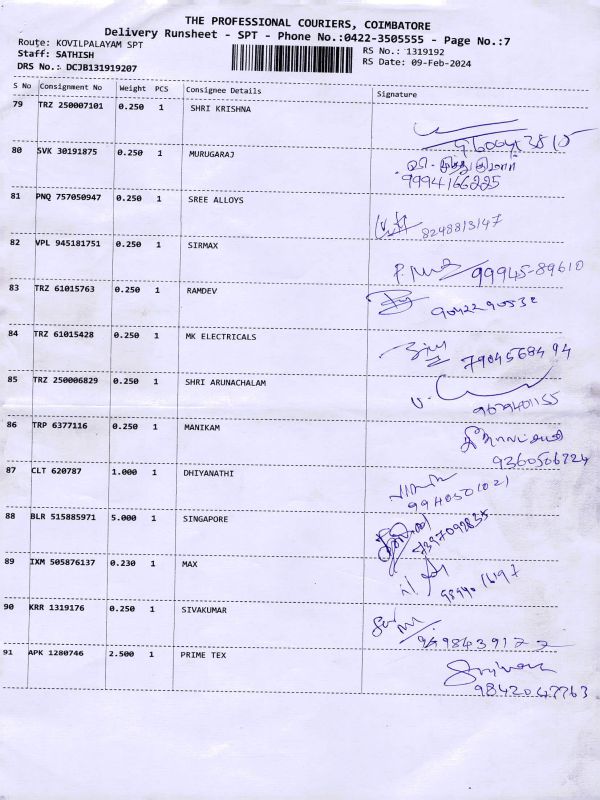 THE PROFESSIONAL COURIERS, COIMBATORE
Delivery Runsheet - SPT - Phone No.:0422-3505555 - Page No.:7
Route: KOVILPALAYAM SPT
RS No.: 1319192
Staff: SATHISH
RS Date: 09-Feb-2024
DRS No.: DCJB131919207
S No Consignment No Weight PCS Consignee Details Signature
79 TRZ 250007101 0.250 1 SHRI KRISHNA
80 SVK 30191875 0.250 1 MURUGARAJ
9994166225
81 PNQ 757050947 0.250 1 SREE ALLOYS
8248813147
82 VPL 945181751 0.250 1 SIRMAX
99945-89610
83 TRZ 61015763 0.250 1 RAMDEV
9042290532
84 TRZ 61015428 0.250 1 MK ELECTRICALS
7904568494
85 TRZ 250006829 0.250 1 SHRI ARUNACHALAM
9629401155
86 TRP 6377116 0.250 1 MANIKAM
9360506224
87 CLT 620787 1.000 1 DHIYANATHI
9940501021
88 BLR 515885971 5.000 1 SINGAPORE
7397092835
89 IXM 505876137 0.230 1 MAX
90 KRR 1319176 0.250 1 SIVAKUMAR
91 APK 1280746 2.500 1 PRIME TEX
9842047763